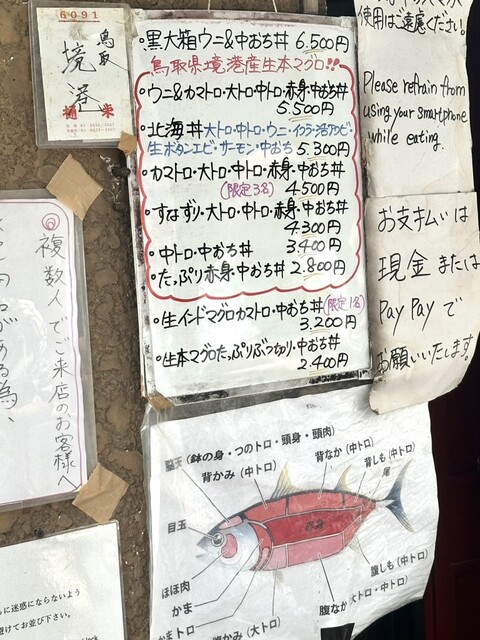 6091
鳥取
境港
・黒大箱ウニ&中おち丼 6.500円
鳥取県境港産生本マグロ!!
・ウニ&カマトロ・大トロ・中トロ・赤身・中おち丼
5.500円
・北海丼 大トロ・中トロ・ウニ・イクラ・活アワビ・
生ボタンエビ・サーモン・中おち 5.300円
・カマトロ・大トロ・中トロ・赤身・中おち丼
(限定3名) 4.500円
・すなずり・大トロ・中トロ・赤身・中おち丼
4.300円
・中トロ・中おち丼 3.400円
・たっぷり赤身・中おち丼 2.800円
・生インドマグロカマトロ・中おち丼 (限定1名)
3.200円
・生本マグロたっぷりぶつ切り・中おち丼
2.400円
使用はご遠慮ください。
Please refrain from
using your smartphone
while eating.
お支払いは
現金または
PayPayで
お願いいたします。
複数人でご来店のお客様へ
脳天(鉢の身・つのトロ・頭身・頭肉)
背かみ(中トロ)
背なか(中トロ)
背しも(中トロ)
尾
目玉
赤身
ほほ肉
かま
かまトロ
腹かみ(大トロ)
腹なか(大トロ・中トロ)
腹しも(中トロ)
に迷惑にならないよう
避けてお並び下さい。